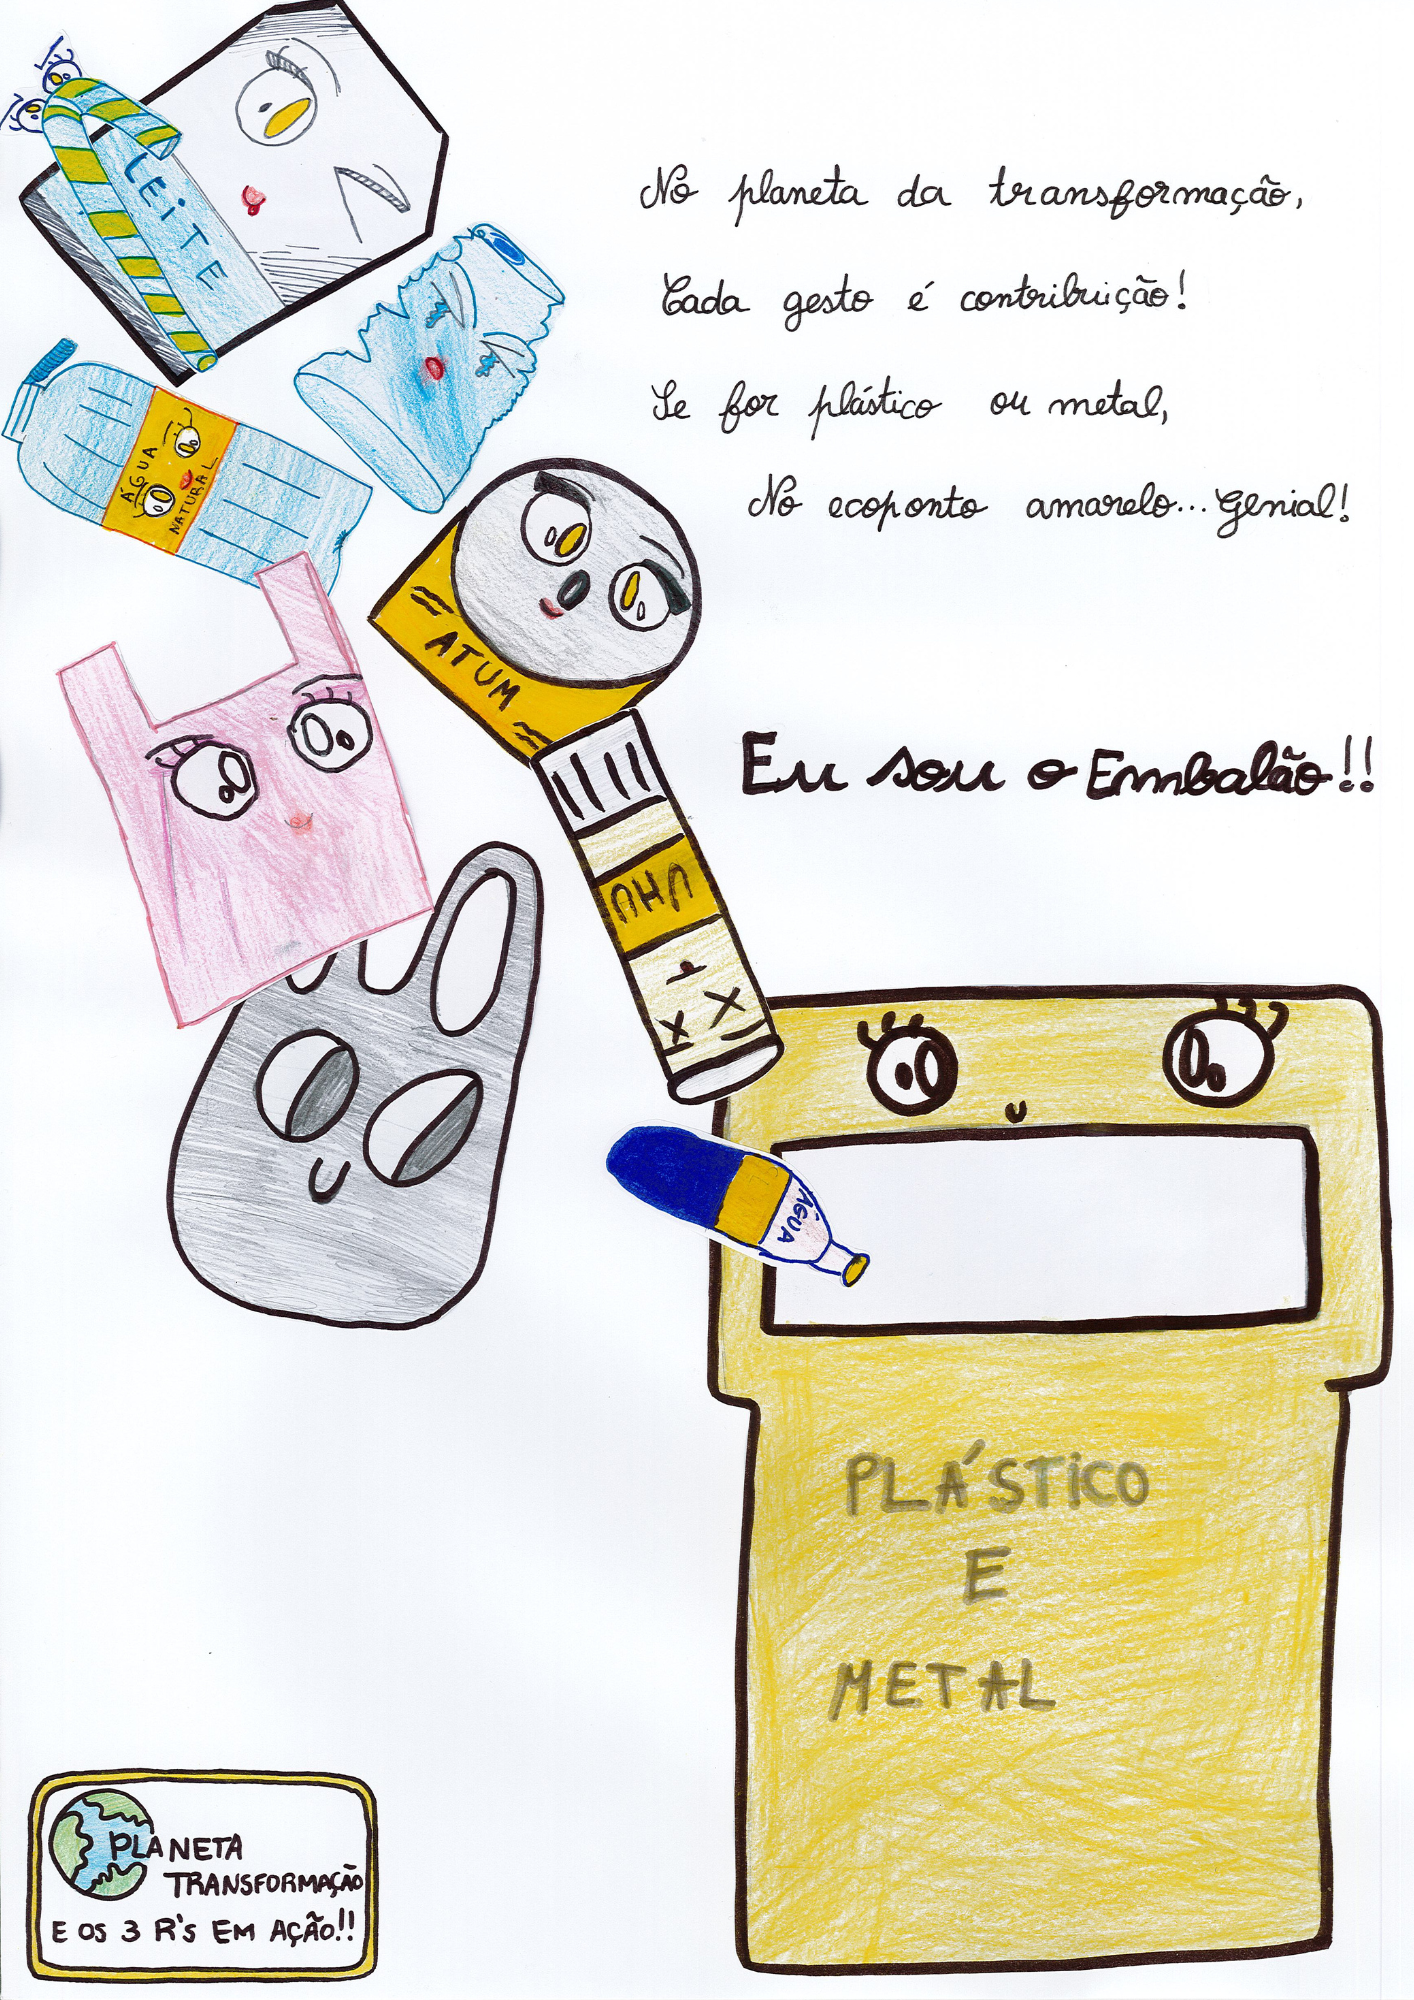 LEITE
No planeta da transformação,
Cada gesto é contribuição!
Se for plástico ou metal,
No ecoponto amarelo... Genial!
ÁGUA
NATURAL
ATUM
Eu sou o Embalão!!
UHU
ÁGUA
PLÁSTICO
E
METAL
PLANETA
TRANSFORMAÇÃO
E OS 3 R's EM AÇÃO!!